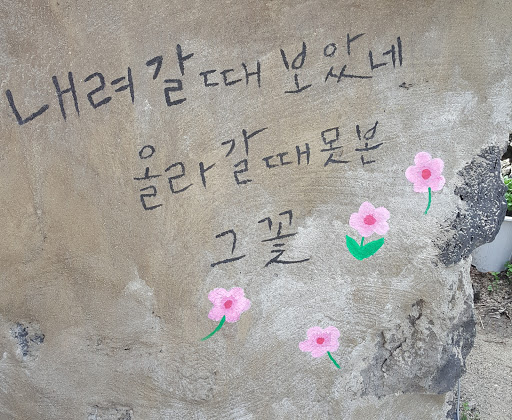 내려갈 때 보았네
올라갈 때 못 본
그 꽃